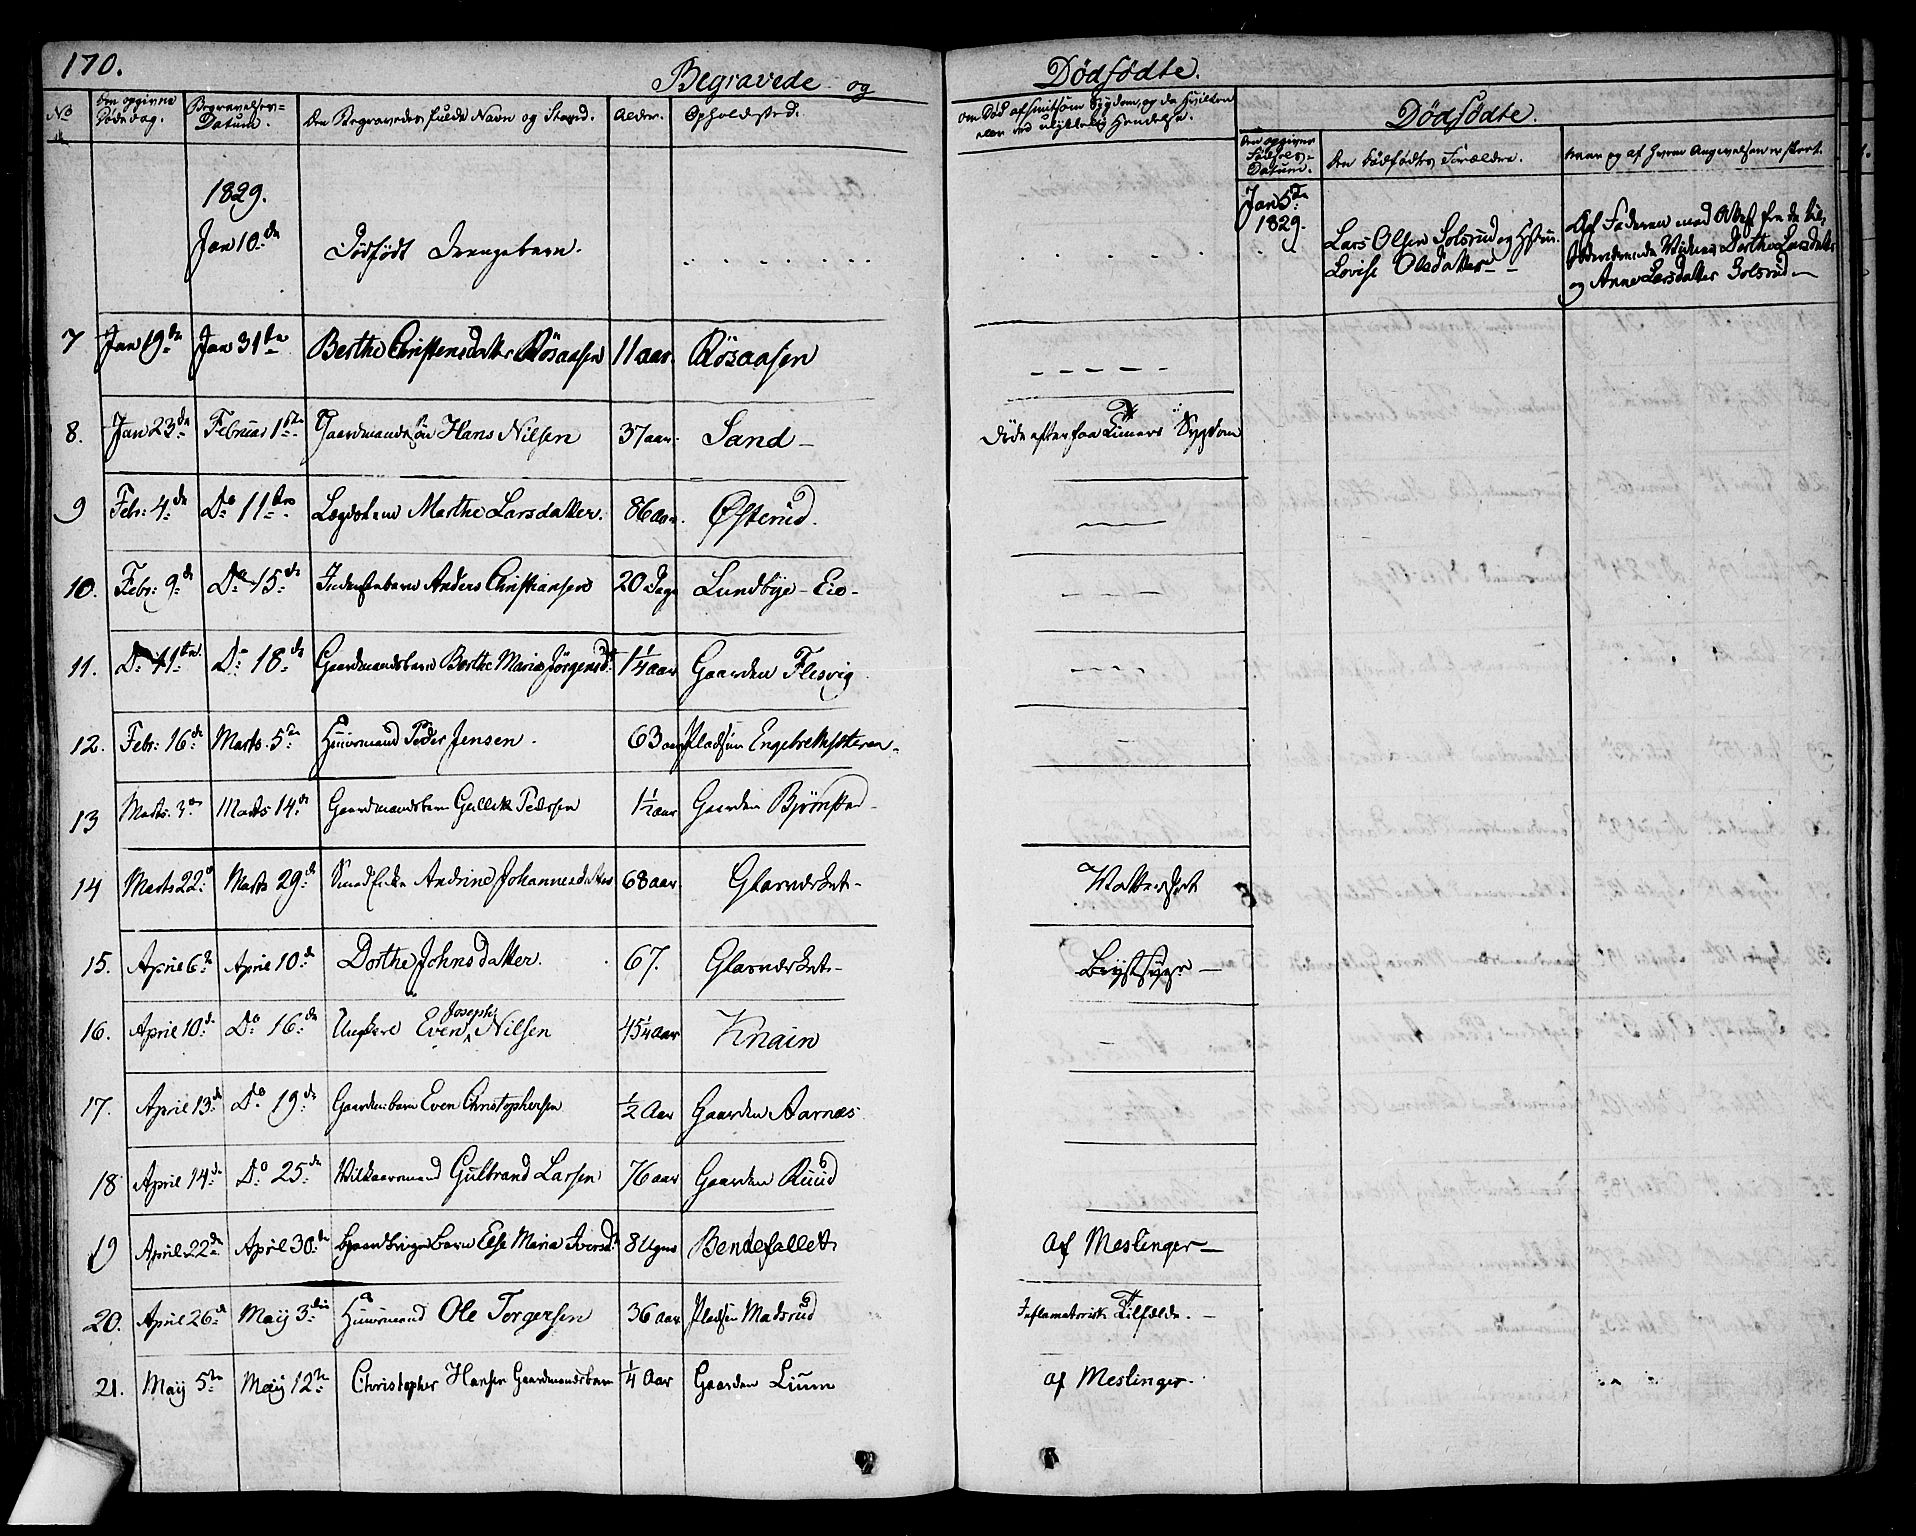 170.
Begravede og Dødfødte.
No
Den opgivne Døds dag.
Begravelses-Datum.
Den Begravedes fulde Navn og Stand.
Alder.
Opholdssted.
om Død af smitsom Sygdom, og da hvilken
eller ved ulykkelig Hendelse.
Dødfødte.
Den opgivne Fødsels-Datum.
Den Dødfødtes Forældre.
naar og af hvem Angivelsen er skeet.
1829.
Jan 10de Dødfødt Drengebarn. Jan 5te 1829.
Lars Olsen Solsrud og Hstru. Lovise Olsdatter
Af Faderen med Attest fra de til-
stædeværende Vidner Dorthe Larsdatter
og Anne Larsdatter Solsrud
7 Jan 19de Jan 31te Berthe Christensdatter Røsaasen 11 aar. Røsaasen
8. Jan 23de Februar 1ste Gaardmandssøn Hans Nilsen 37 aar. Sand Døde efter faa Timers Sygdom
9 Febr: 4de Do 11te Lægdslem Marthe Larsdatter. 86 aar. Østerud.
10. Febr: 9de Do 15de Inderstebarn Anders Christiansen 20 Dage Lundbye-Eie
11. Do 11te Do 18de Gaardmandsbarn Berthe Maria Jørgensd: 1¼ aar Gaarden Flesvig
12. Febr: 16de Marts 5te Huusmand Peder Jensen. 63 aar Pladsen Engebrethsteren
13 Marts 3die Marts 14de Gaardmandsbarn Gullik Pedersen 1½ aar Gaarden Bjørnstad
14 Marts 22de Marts 29de Smedenke Andrine Johannesdatter 68 aar Glasværket Wattersot
15. April 6te April 10de Dorthe Johnsdatter. 67. Glasværket Brystsyge
16. April 10de Do 16de Ungkarl Even Joseph Nilsen 45¼ aar Knain
17. April 13de Do 19de Gaardm:barn Even Christophersen ½ Aar Gaarden Aarnæs
18 April 14de Do 25de Vilkaarsmand Gulbrand Larsen 76 aar Gaarden Ruud
19 April 22de April 30de Gaardbrugerbarn Else Maria Iversd: 8 Uger Bendefallet Af Meslinger
20. April 26de Maij 3die Huusmand Ole Torgersen 36 aar Pladsen Madsrud Inflamatorisk Tilfælde.
21. Maij 5te Maij 12te Christopher Hansen Gaardmandsbarn ¼ Aar Gaarden Lium af Meslinger.